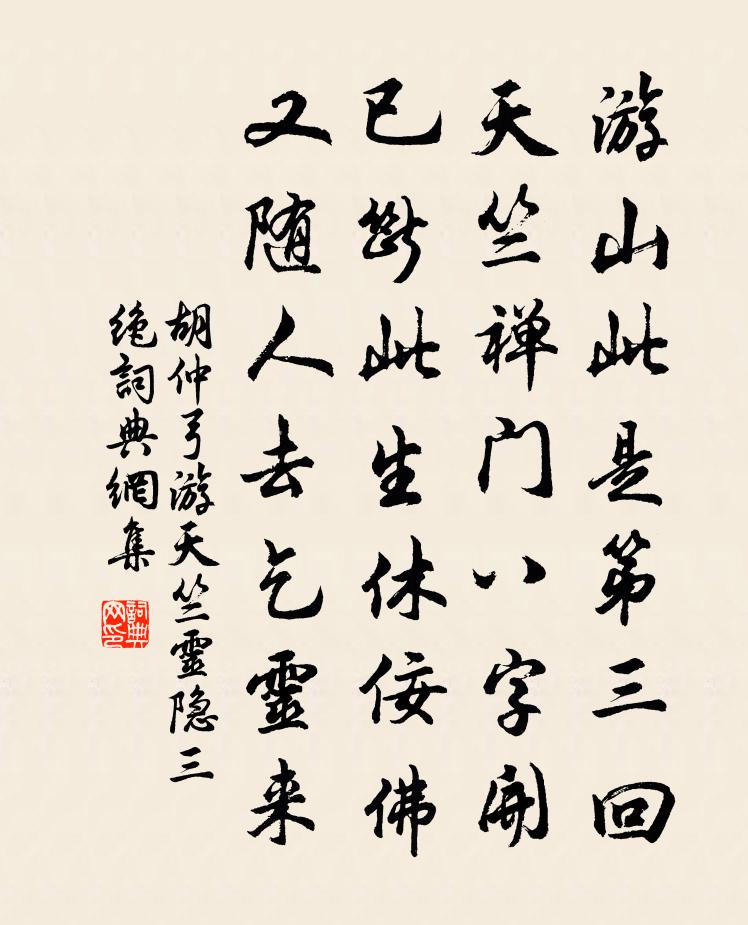 游山此是第三回
天竺禅门八字開
已斷此生休佞佛
又随人去乞靈来
胡仲弓游天竺靈隐三
绝詞典網集
詞典
网印